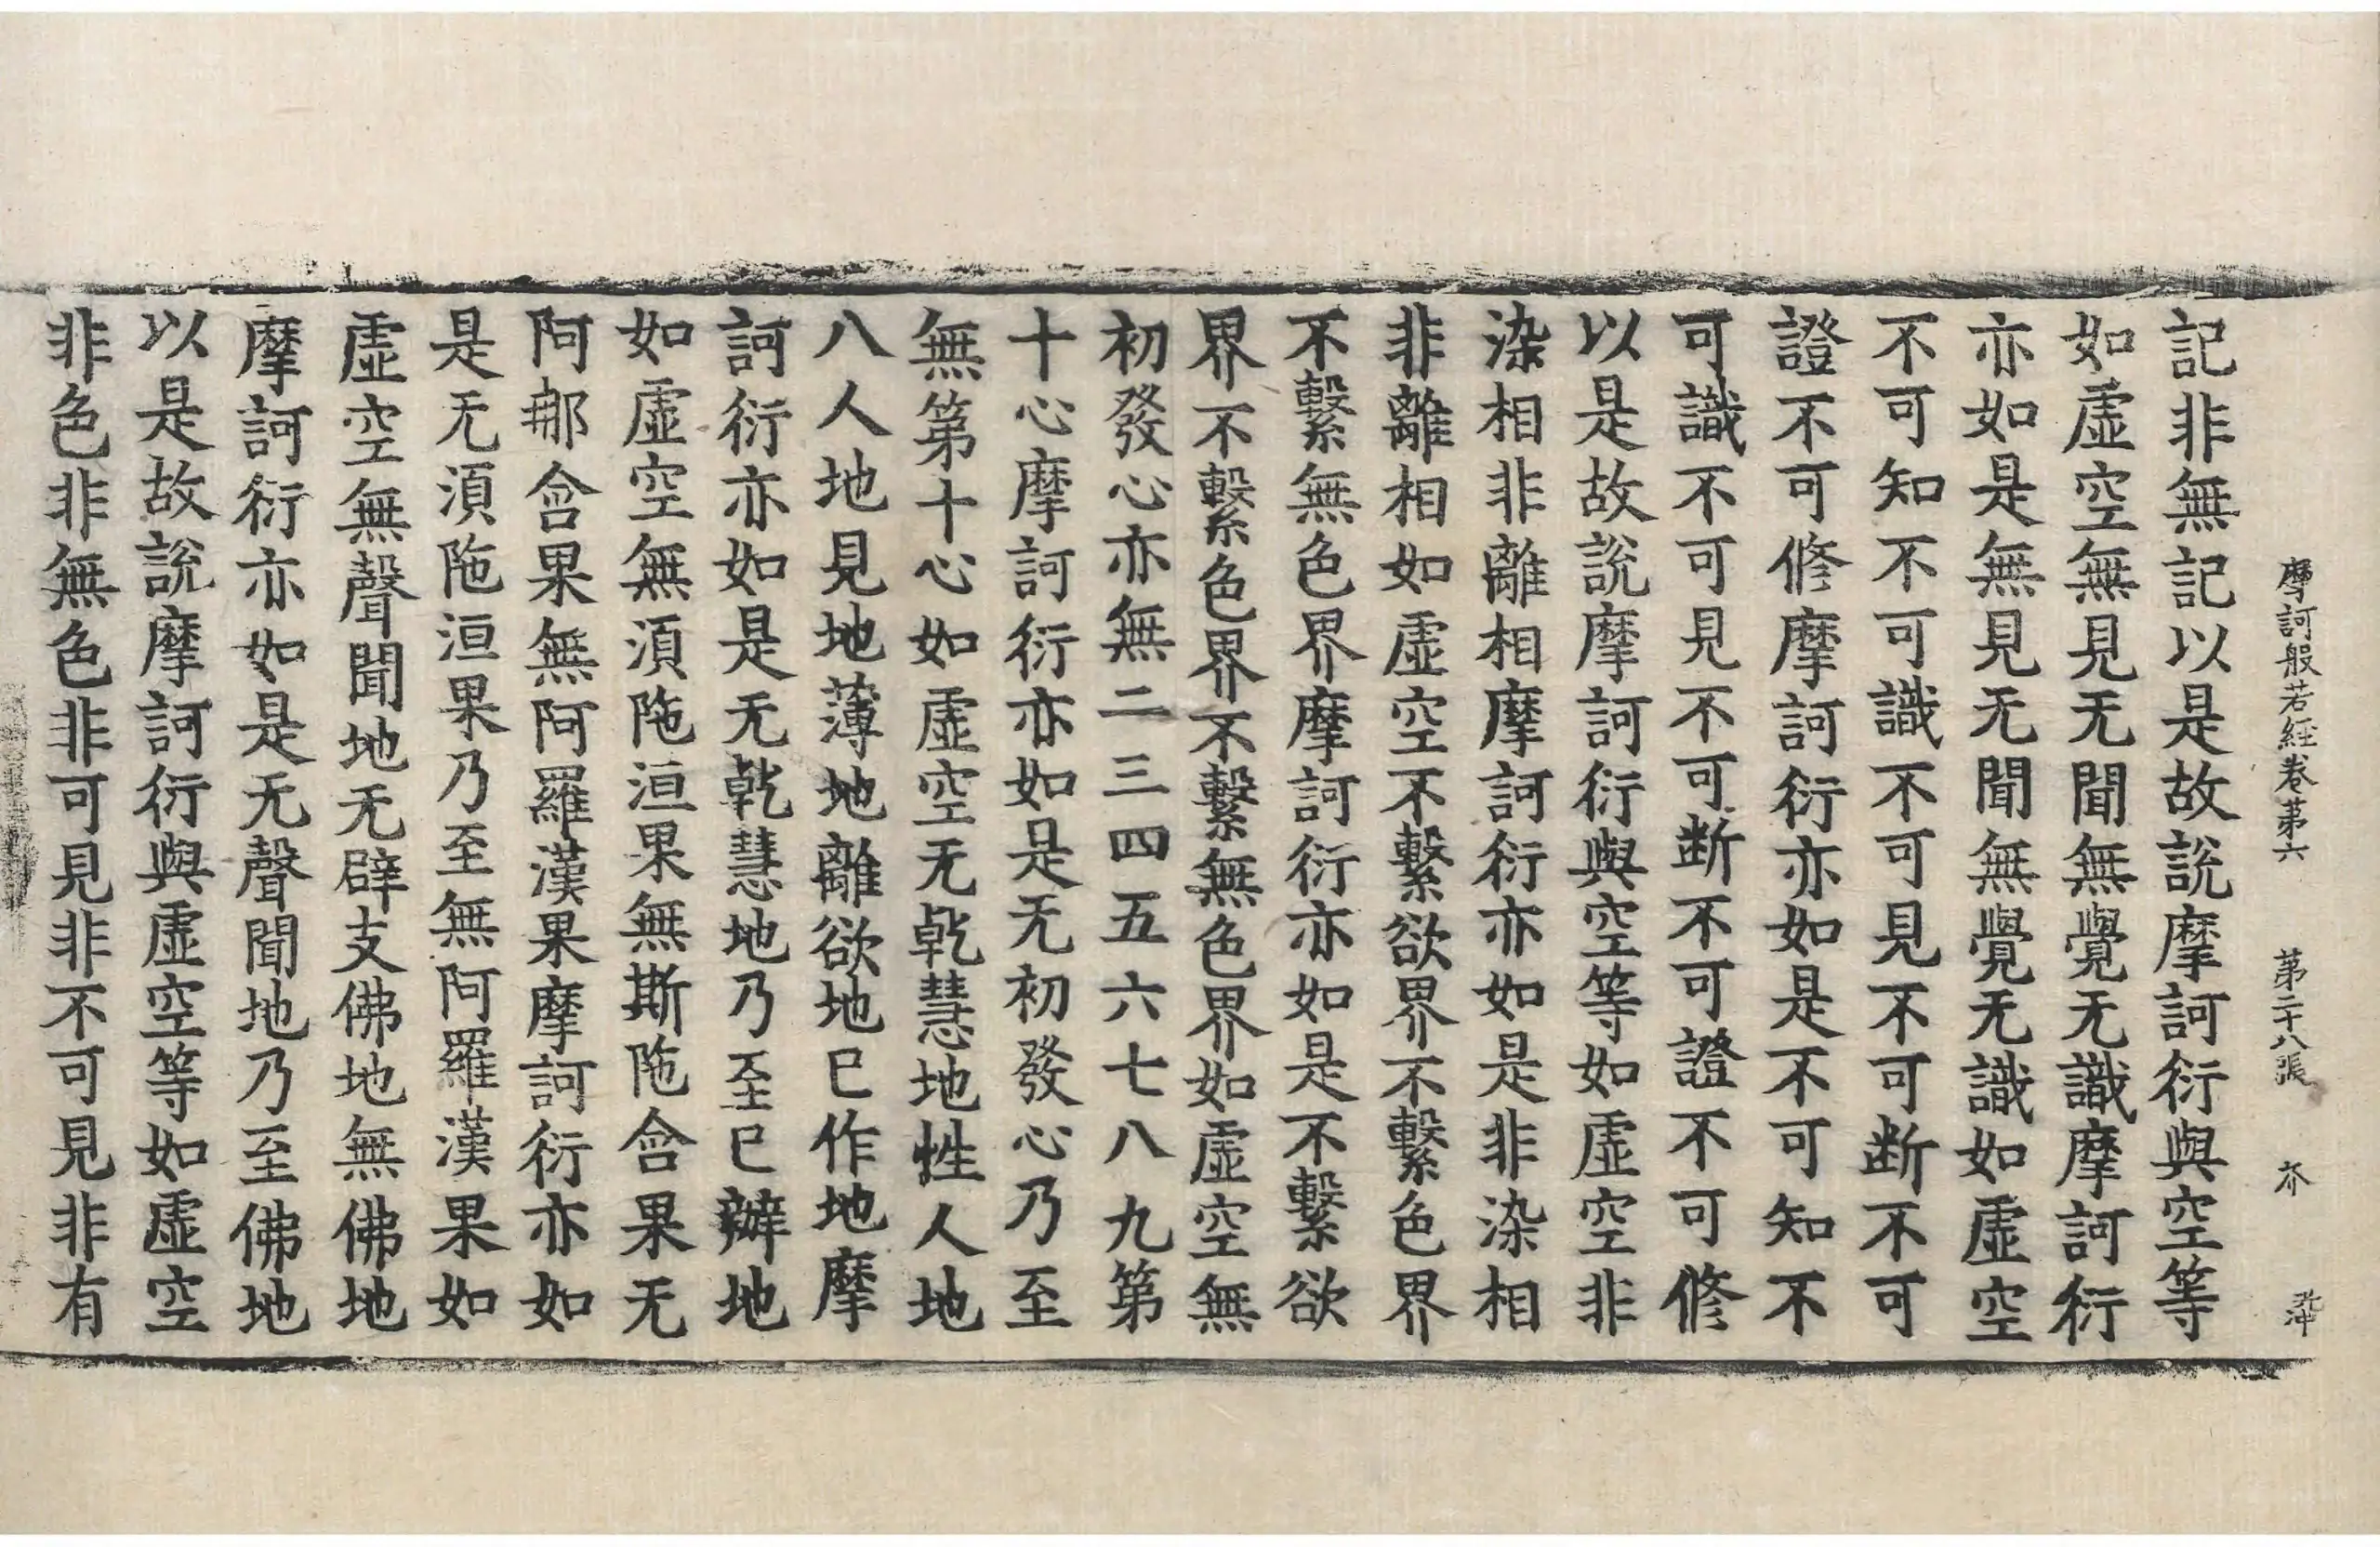 摩訶般若經卷苐六 苐二十八張 芥
記非無記以是故說摩訶衍與空等
如虛空無見无聞無覺无識摩訶衍
亦如是無見无聞無覺无識如虛空
不可知不可識不可見不可断不可
證不可修摩訶衍亦如是不可知不
可識不可見不可断不可證不可修
以是故說摩訶衍與空等如虛空非
染相非離相摩訶衍亦如是非染相
非離相如虛空不繫欲界不繫色界
不繫無色界摩訶衍亦如是不繫欲
界不繫色界不繫無色界如虛空無
初發心亦無二三四五六七八九第
十心摩訶衍亦如是无初發心乃至
無第十心如虛空无乾慧地性人地
八人地見地薄地離欲地已作地摩
訶衍亦如是无乾慧地乃至已辦地
如虛空無湏陁洹果無斯陁含果无
阿那含果無阿羅漢果摩訶衍亦如
是无湏陁洹果乃至無阿羅漢果如
虛空無聲聞地无辟支佛地無佛地
摩訶衍亦如是无聲聞地乃至佛地
以是故說摩訶衍與虛空等如虛空
非色非無色非可見非不可見非有